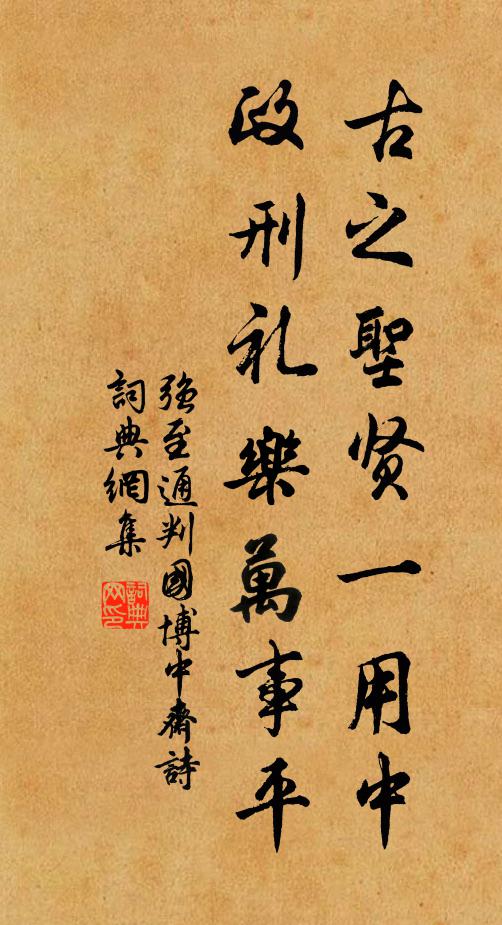 古之聖贤一用中
政刑礼樂萬事平
强至通判國博中齋詩
詞典網集
詞典网印